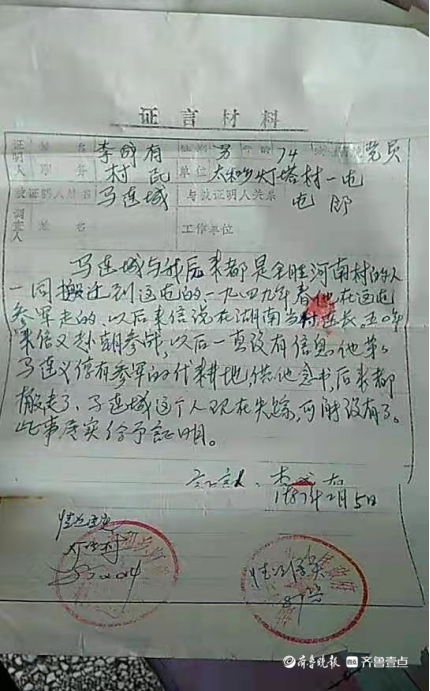 证言材料
证明人 姓名 李成有 性别 男 年龄 74 党员
职务 村民 单位 太和乡灯塔村一屯
被证明人姓名 马连城 与被证明人关系 屯邻
调查人 姓名 工作单位
马连城与我后来都是全胜河南村的人
一同搬迁到这屯的一九四九年春他在这屯
参军走的,以后来信说在湖南当付连长。五〇年
来信又赴朝参战,以后一直没有信息。他弟
马连义停有参军的代耕地,后来都
搬走了。马连城这个人现在失踪,何时没有了。
此事属实给予证明。
证言人:李成有
1987年2月5日
情况属实
灯塔村
情况属实
齐鲁晚报 齐鲁壹点